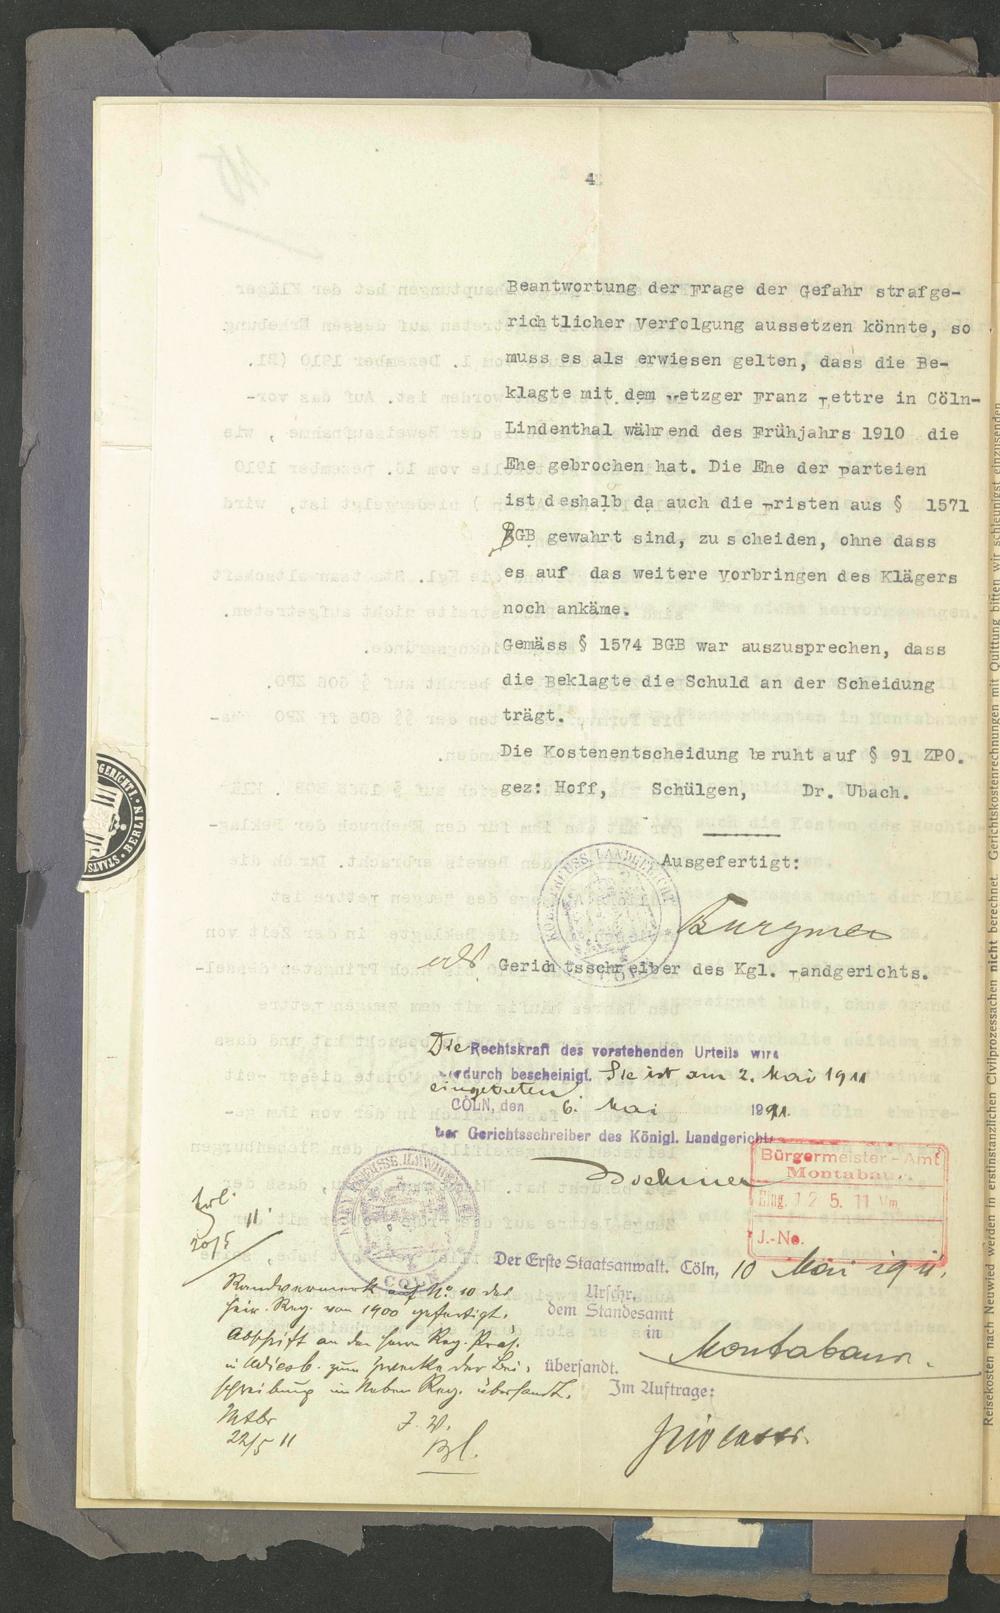 4
Beantwortung der Frage der Gefahr strafge-
richtlicher Verfolgung aussetzen könnte, so
muss es als erwiesen gelten, dass die Be-
klagte mit dem Metzger Franz Lettre in Cöln-
Lindenthal während des Frühjahrs 1910 die
Ehe gebrochen hat. Die Ehe der Parteien
ist deshalb da auch die Fristen aus § 1571
BGB gewahrt sind, zu scheiden, ohne dass
es auf das weitere Vorbringen des Klägers
noch ankäme.
Gemäss § 1574 BGB war auszusprechen, dass
die Beklagte die Schuld an der Scheidung
trägt.
Die Kostenentscheidung beruht auf § 91 ZPO.
gez: Hoff, Schülgen, Dr. Ubach.
Ausgefertigt:
als Gerichtsschreiber des Kgl. Landgerichts.
Die Rechtskraft des vorstehenden Urteils wird
hierdurch bescheinigt. Sie ist am 2. Mai 1911
eingetreten
CÖLN, den 6. Mai 1911.
Der Gerichtsschreiber des Königl. Landgerichts
Bürgermeister-Amt
Montabaur.
Eing. 12 5. 11 Vm
J.-No.
Der Erste Staatsanwalt. Cöln, 10 Mai 1911.
Urschr.
dem Standesamt
in
Montabaur.
übersandt.
Im Auftrage:
20/5 11
Randvermerk auf No 10 des
Heir. Reg. von 1900 gefertigt.
Abschrift an den Herrn Reg. Präs.
in Wiesb. zum Zwecke der Bei-
schreibung im Neben Reg. übersandt.
Mtbr
22/5 11
J. V.
GERICHT I · BERLIN
STAATS
KÖN. PREUSS. LANDGERICHT
CÖLN
KÖN. PREUSS. LANDGERICHT
CÖLN
Reisekosten nach Neuwied werden in erstinstanzlichen Civilprozessachen nicht berechnet. Gerichtskostenrechnungen mit Quittung bitten wir schleunigst einzusenden